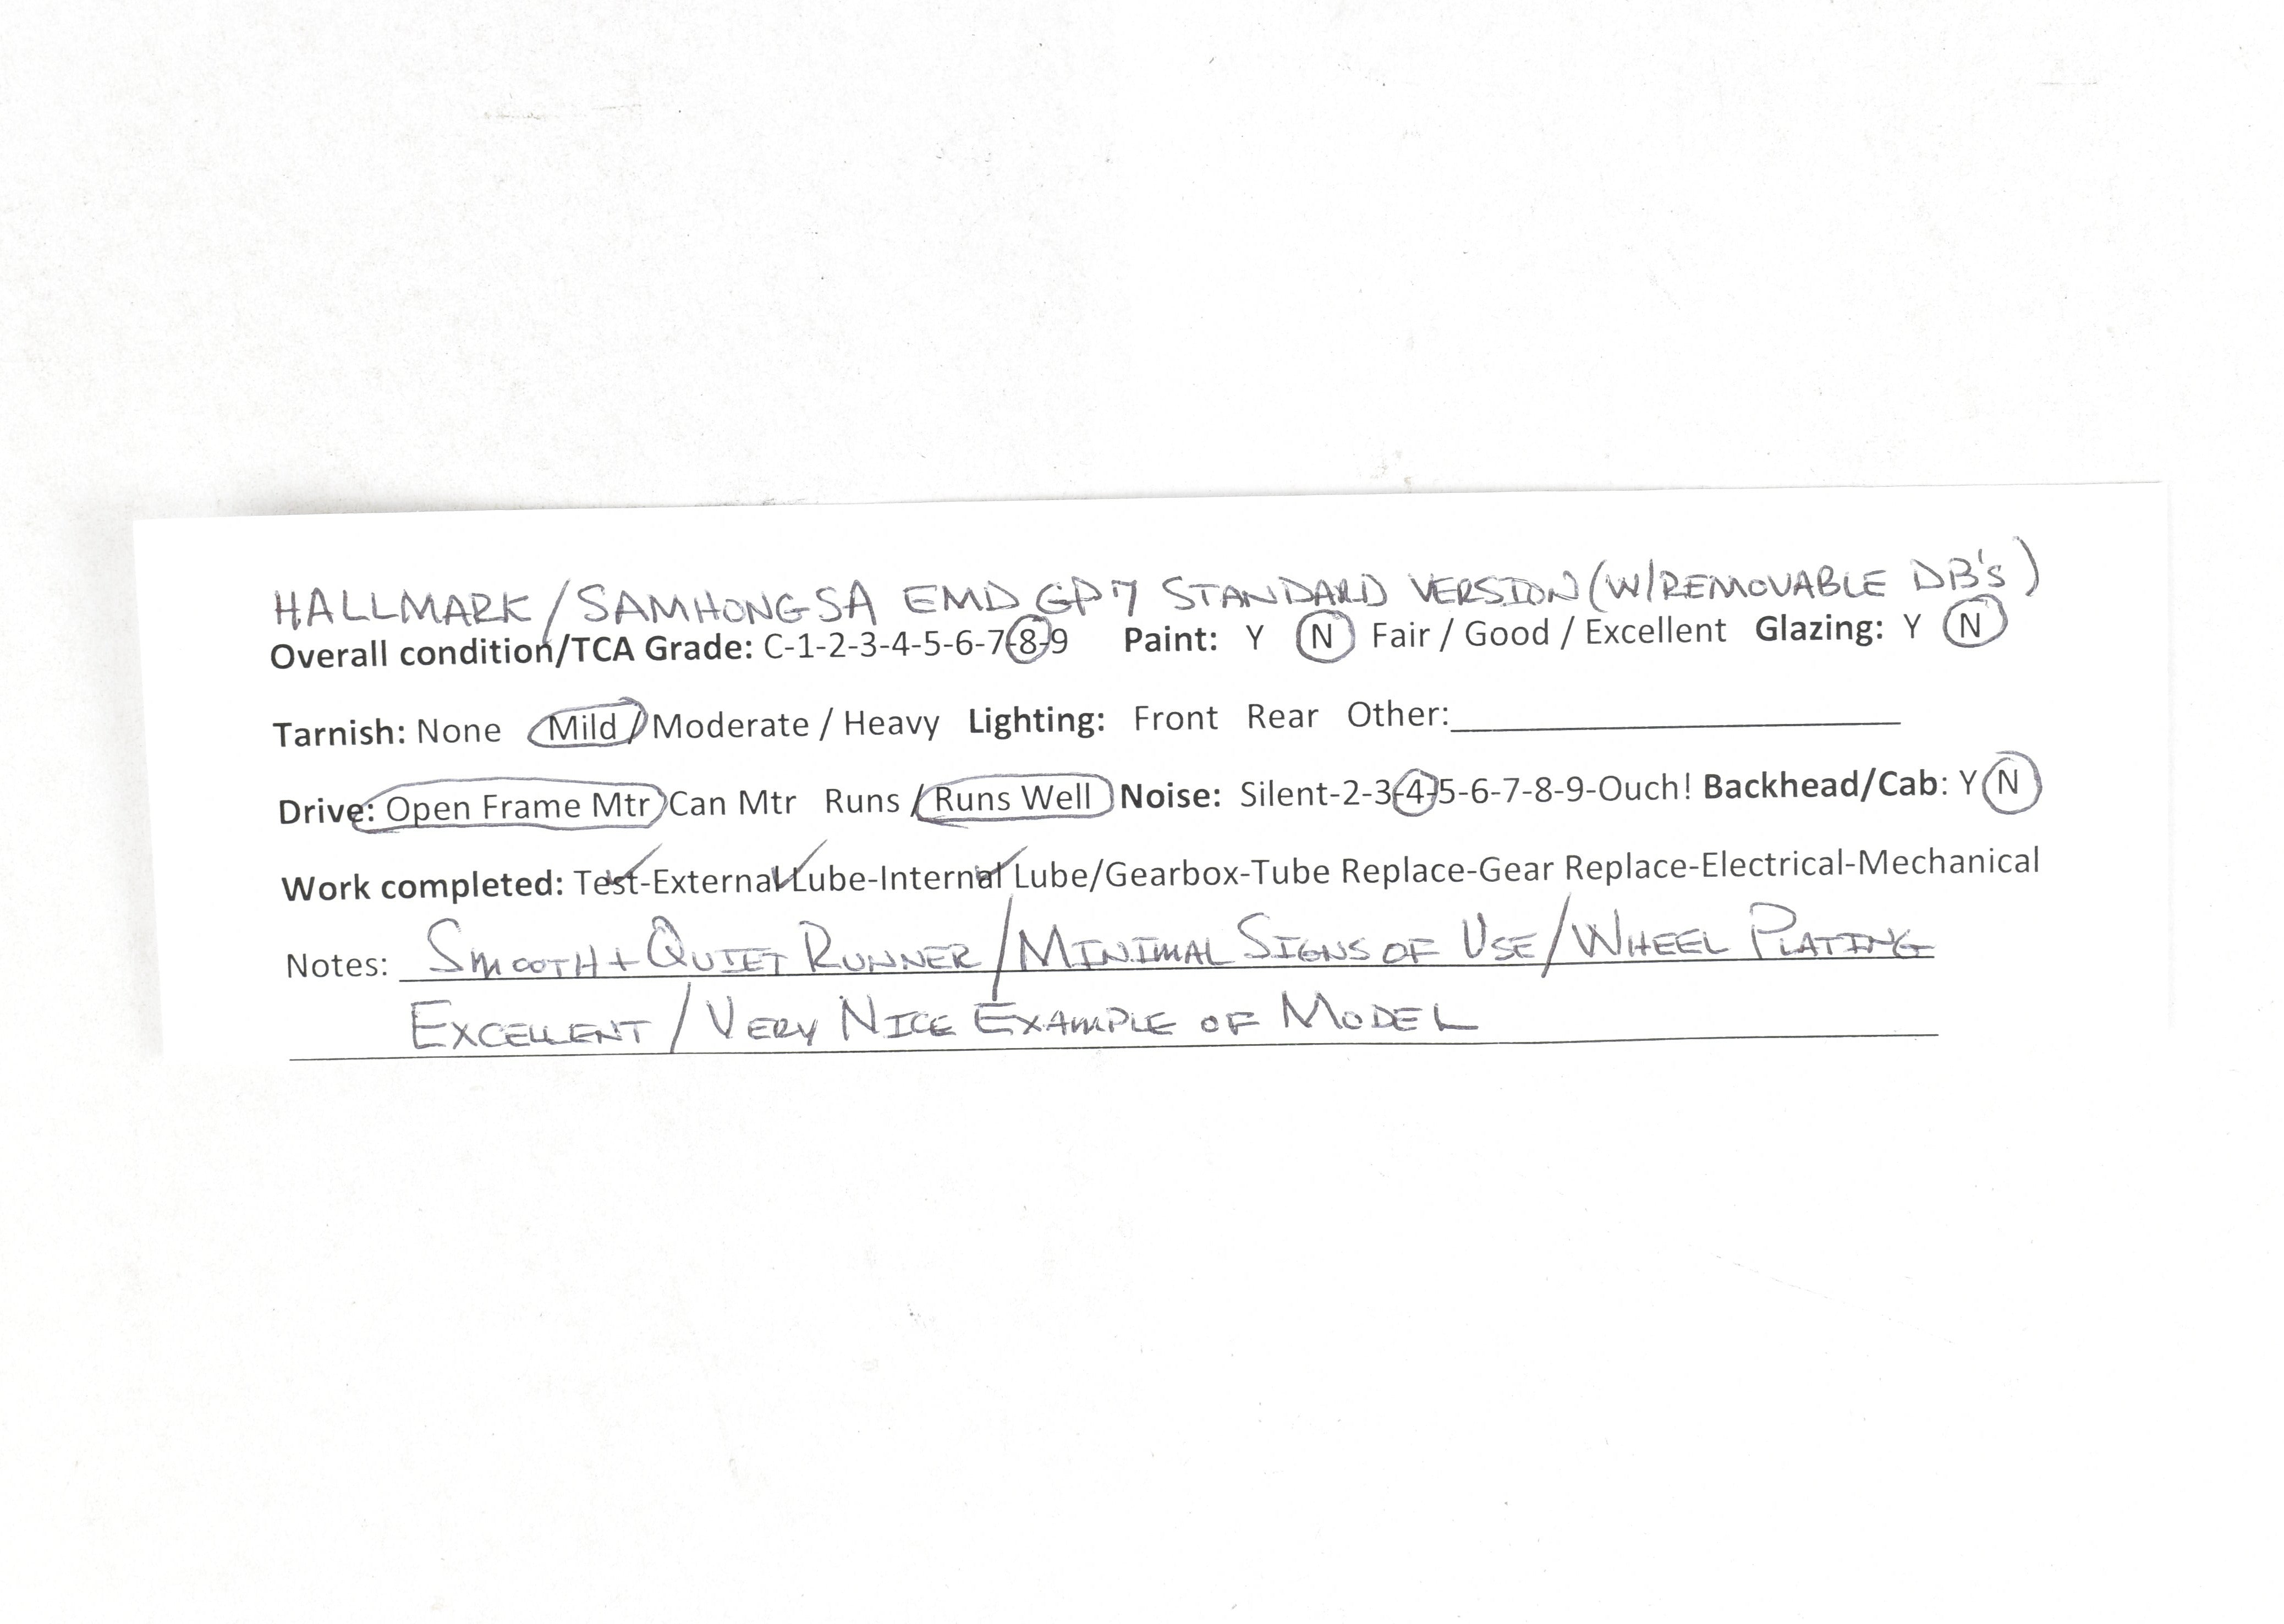 HALLMARK/SAMHONGSA EMD GP7 STANDARD VERSION (W/REMOVABLE DB'S)
Overall condition/TCA Grade: C-1-2-3-4-5-6-7-8-9 Paint: Y N Fair / Good / Excellent Glazing: Y N
Tarnish: None Mild / Moderate / Heavy Lighting: Front Rear Other:
Drive: Open Frame Mtr Can Mtr Runs / Runs Well Noise: Silent-2-3-4-5-6-7-8-9-Ouch! Backhead/Cab: Y N
Work completed: Test-External Lube-Internal Lube/Gearbox-Tube Replace-Gear Replace-Electrical-Mechanical
Notes: SMOOTH + QUIET RUNNER / MINIMAL SIGNS OF USE / WHEEL PLATING
EXCELLENT / VERY NICE EXAMPLE OF MODEL